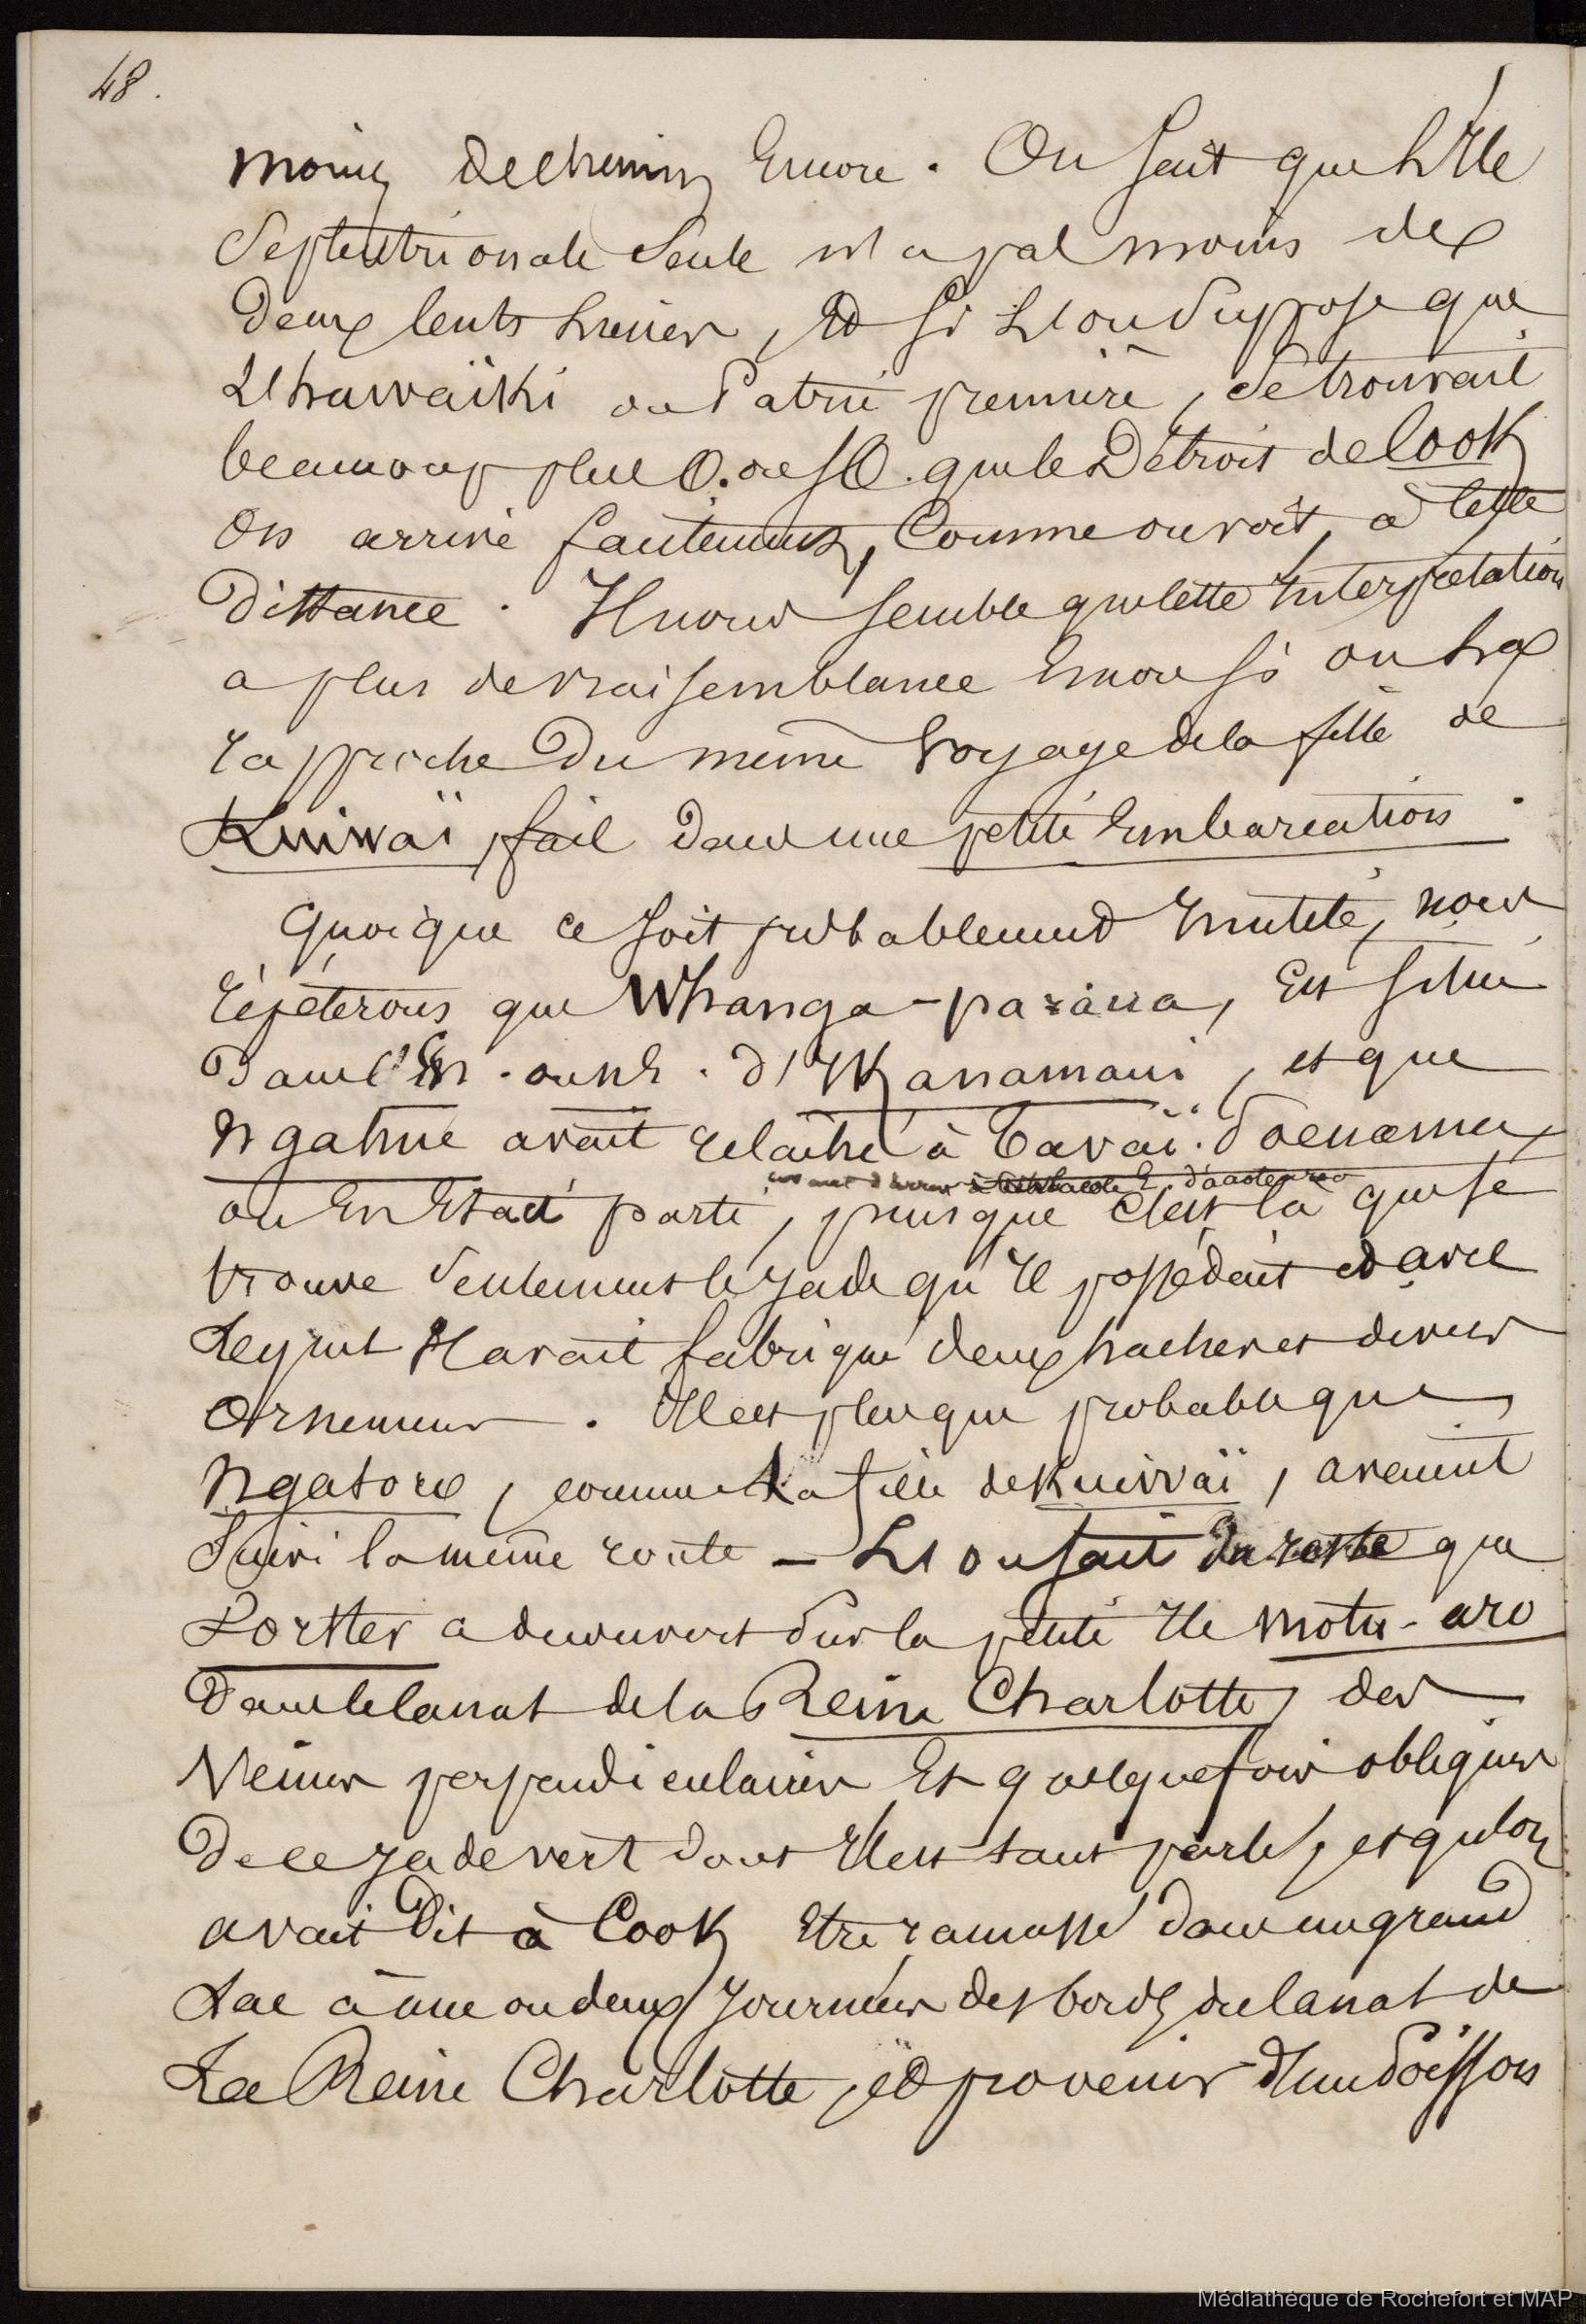 48.
moins de chemin encore. On sait que l'Ile
Septentrionale seule n'a pas moins de
deux cents lieues, et si l'on suppose que
l'hawaïki ou Patrie première, se trouvait
beaucoup plus O. ou S.O. que le Détroit de Cook
on arrive facilement, comme on voit, à cette
distance. Il nous semble que cette interprétation
a plus de vraisemblance encore si on la
rapproche du même voyage de la fille de
Kuiwaï, fait dans une petite embarcation.
Quoique ce soit probablement inutile, nous
répéterons que Whanga-paraua, est situé
dans l'E.N. ou N.E. d'Ikanamaui, et que
Ngahue avait relâché à Tavaï-Poenamu
avant d'arriver
ou en était parti, puisque c'est là que se
trouve seulement le jade qu'il possédait et avec
lequel il avait fabriqué deux haches et divers
ornemens. Il est plus que probable que
Ngatoro, comme la fille de Kuiwaï, avaient
suivi la même route — L'on sait du reste que
Forster a découvert sur la petite Ile Motu-aro
dans le canal de la Reine Charlotte, des
veines perpendiculaires et quelquefois obliques
de ce jade vert dont il est tant parlé, et qu'on
avait dit à Cook être ramassé dans un grand
Lac à une ou deux journées des bords du canal de
La Reine Charlotte, et provenir d'un poisson
Médiathèque de Rochefort et MAP